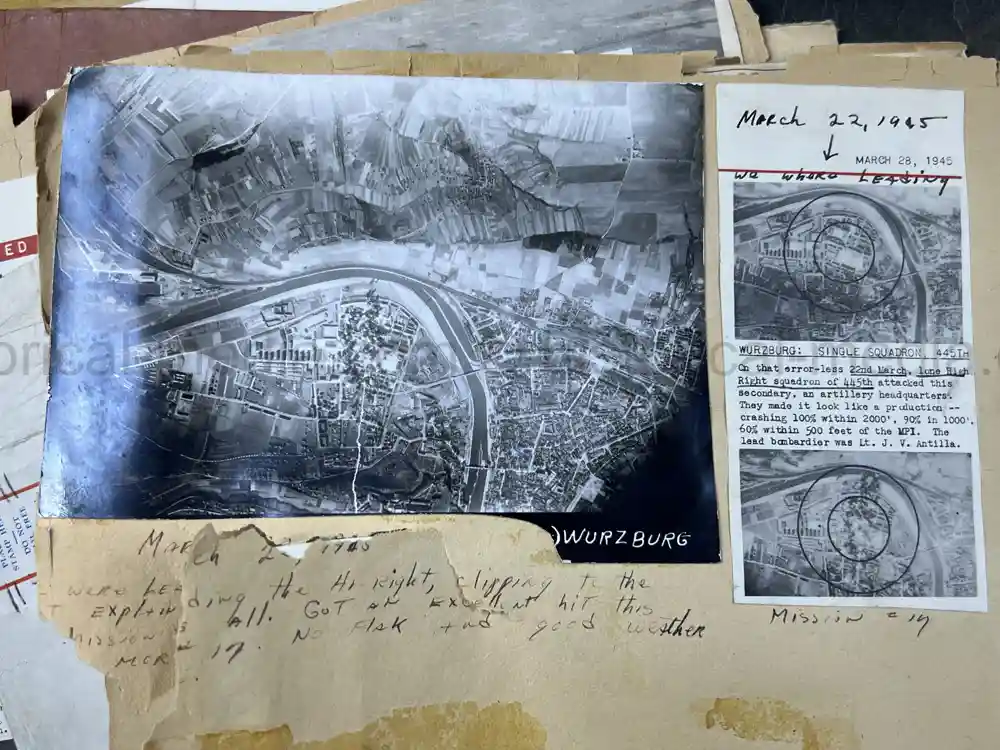 March 22, 1945
MARCH 28, 1945
we where Leading
WURZBURG: SINGLE SQUADRON, 445TH
On that error-less 22nd March, lone High
Right squadron of 445th attacked this
secondary, an artillery headquarters.
They made it look like a production --
crashing 100% within 2000', 90% in 1000',
60% within 500 feet of the MPI. The
lead bombardier was Lt. J. V. Antilla.
Mission #14
)WURZBURG
March 22, 1945
were Leading the Hi-Right, clipping to the
Explains All. Got an Excellent hit this
Mission. No Flak and good weather
ED
DO NOT